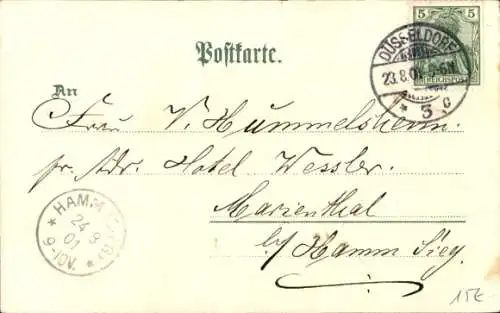 Postkarte.
5 5
REICHSPOST
DÜSSELDORF
23.8.01. 5-6N.
* 3 c
An
Frau V. Hummelsheim.
pr. Adr. Hotel Wessler.
Marienthal
b/ Hamm Sieg.
* HAMM (SIEG) *
24 8
01
9-10V.
15€